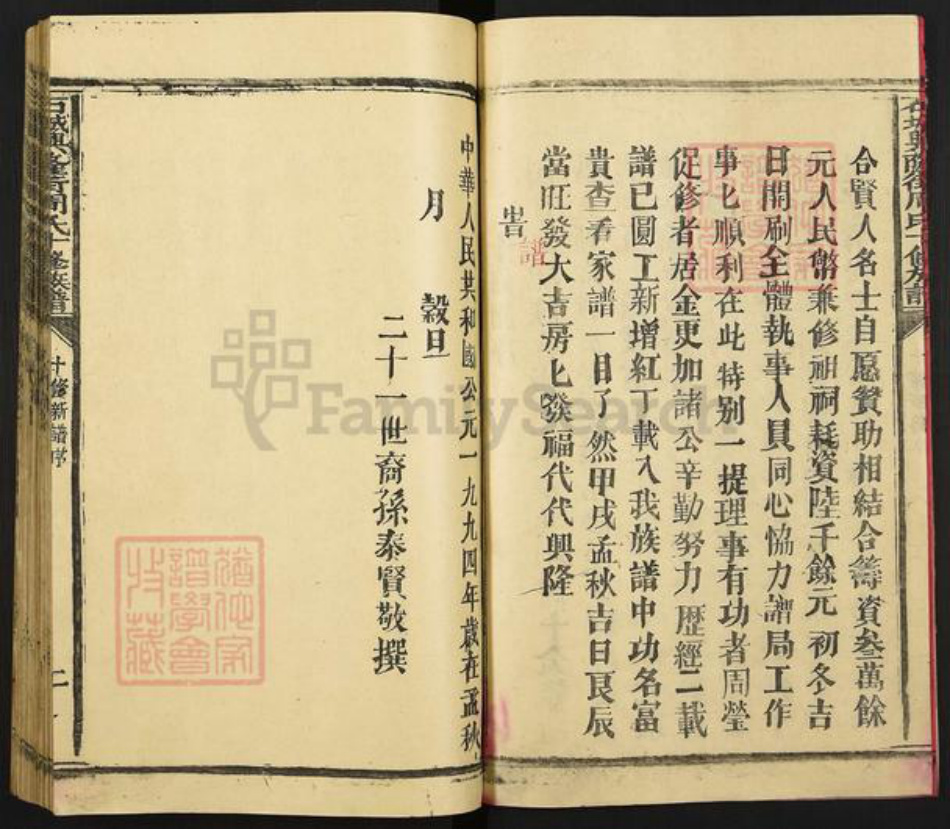 合賢人名士自愿贊助相結合籌資叁萬餘
元人民幣兼修祖祠耗資陸千餘元初冬吉
日開刷全體執事人員同心恊力譜局工作
事匕順利在此特别一提理事有功者周瑩
促修者居金更加諸公辛勤努力歷經二載
譜已圓工新增紅丁載入我族譜中功名富
貴查看家譜一目了然甲戌孟秋吉日良辰
當旺發大吉房匕發福代代興隆
旹
譜
中華人民共和國公元一九九四年歲在孟秋
月 穀旦
二十一世裔孫泰賢敬撰
石城興隆街周氏十修族譜
十修新譜序
二
FamilySearch